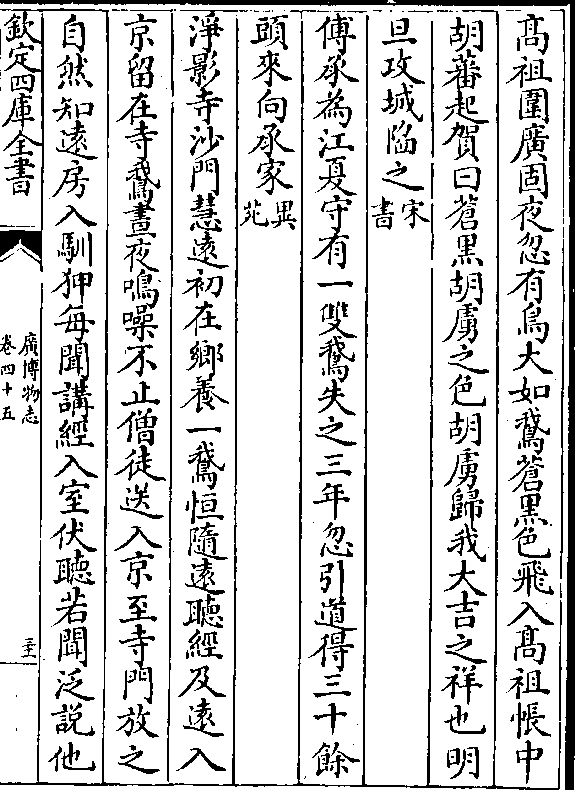 高祖圍廣固夜忽有鳥大如鵞蒼黑色飛入髙祖帳中
胡蕃起賀曰蒼黑胡虜之色胡虜歸我大吉之祥也明
旦攻城陷之宋書
傅承為江夏守有一雙鵞失之三年忽引道得三十餘
頭來向承家異苑
淨影寺沙門慧逺初在鄉養一鵞恒隨逺聽經及逺入
京留在寺鵞晝夜鳴噪不止僧徒送入京至寺門放之
自然知逺房入馴狎每聞講經入室伏聽若聞泛說他
欽定四庫全書
廣博物志
卷四十五